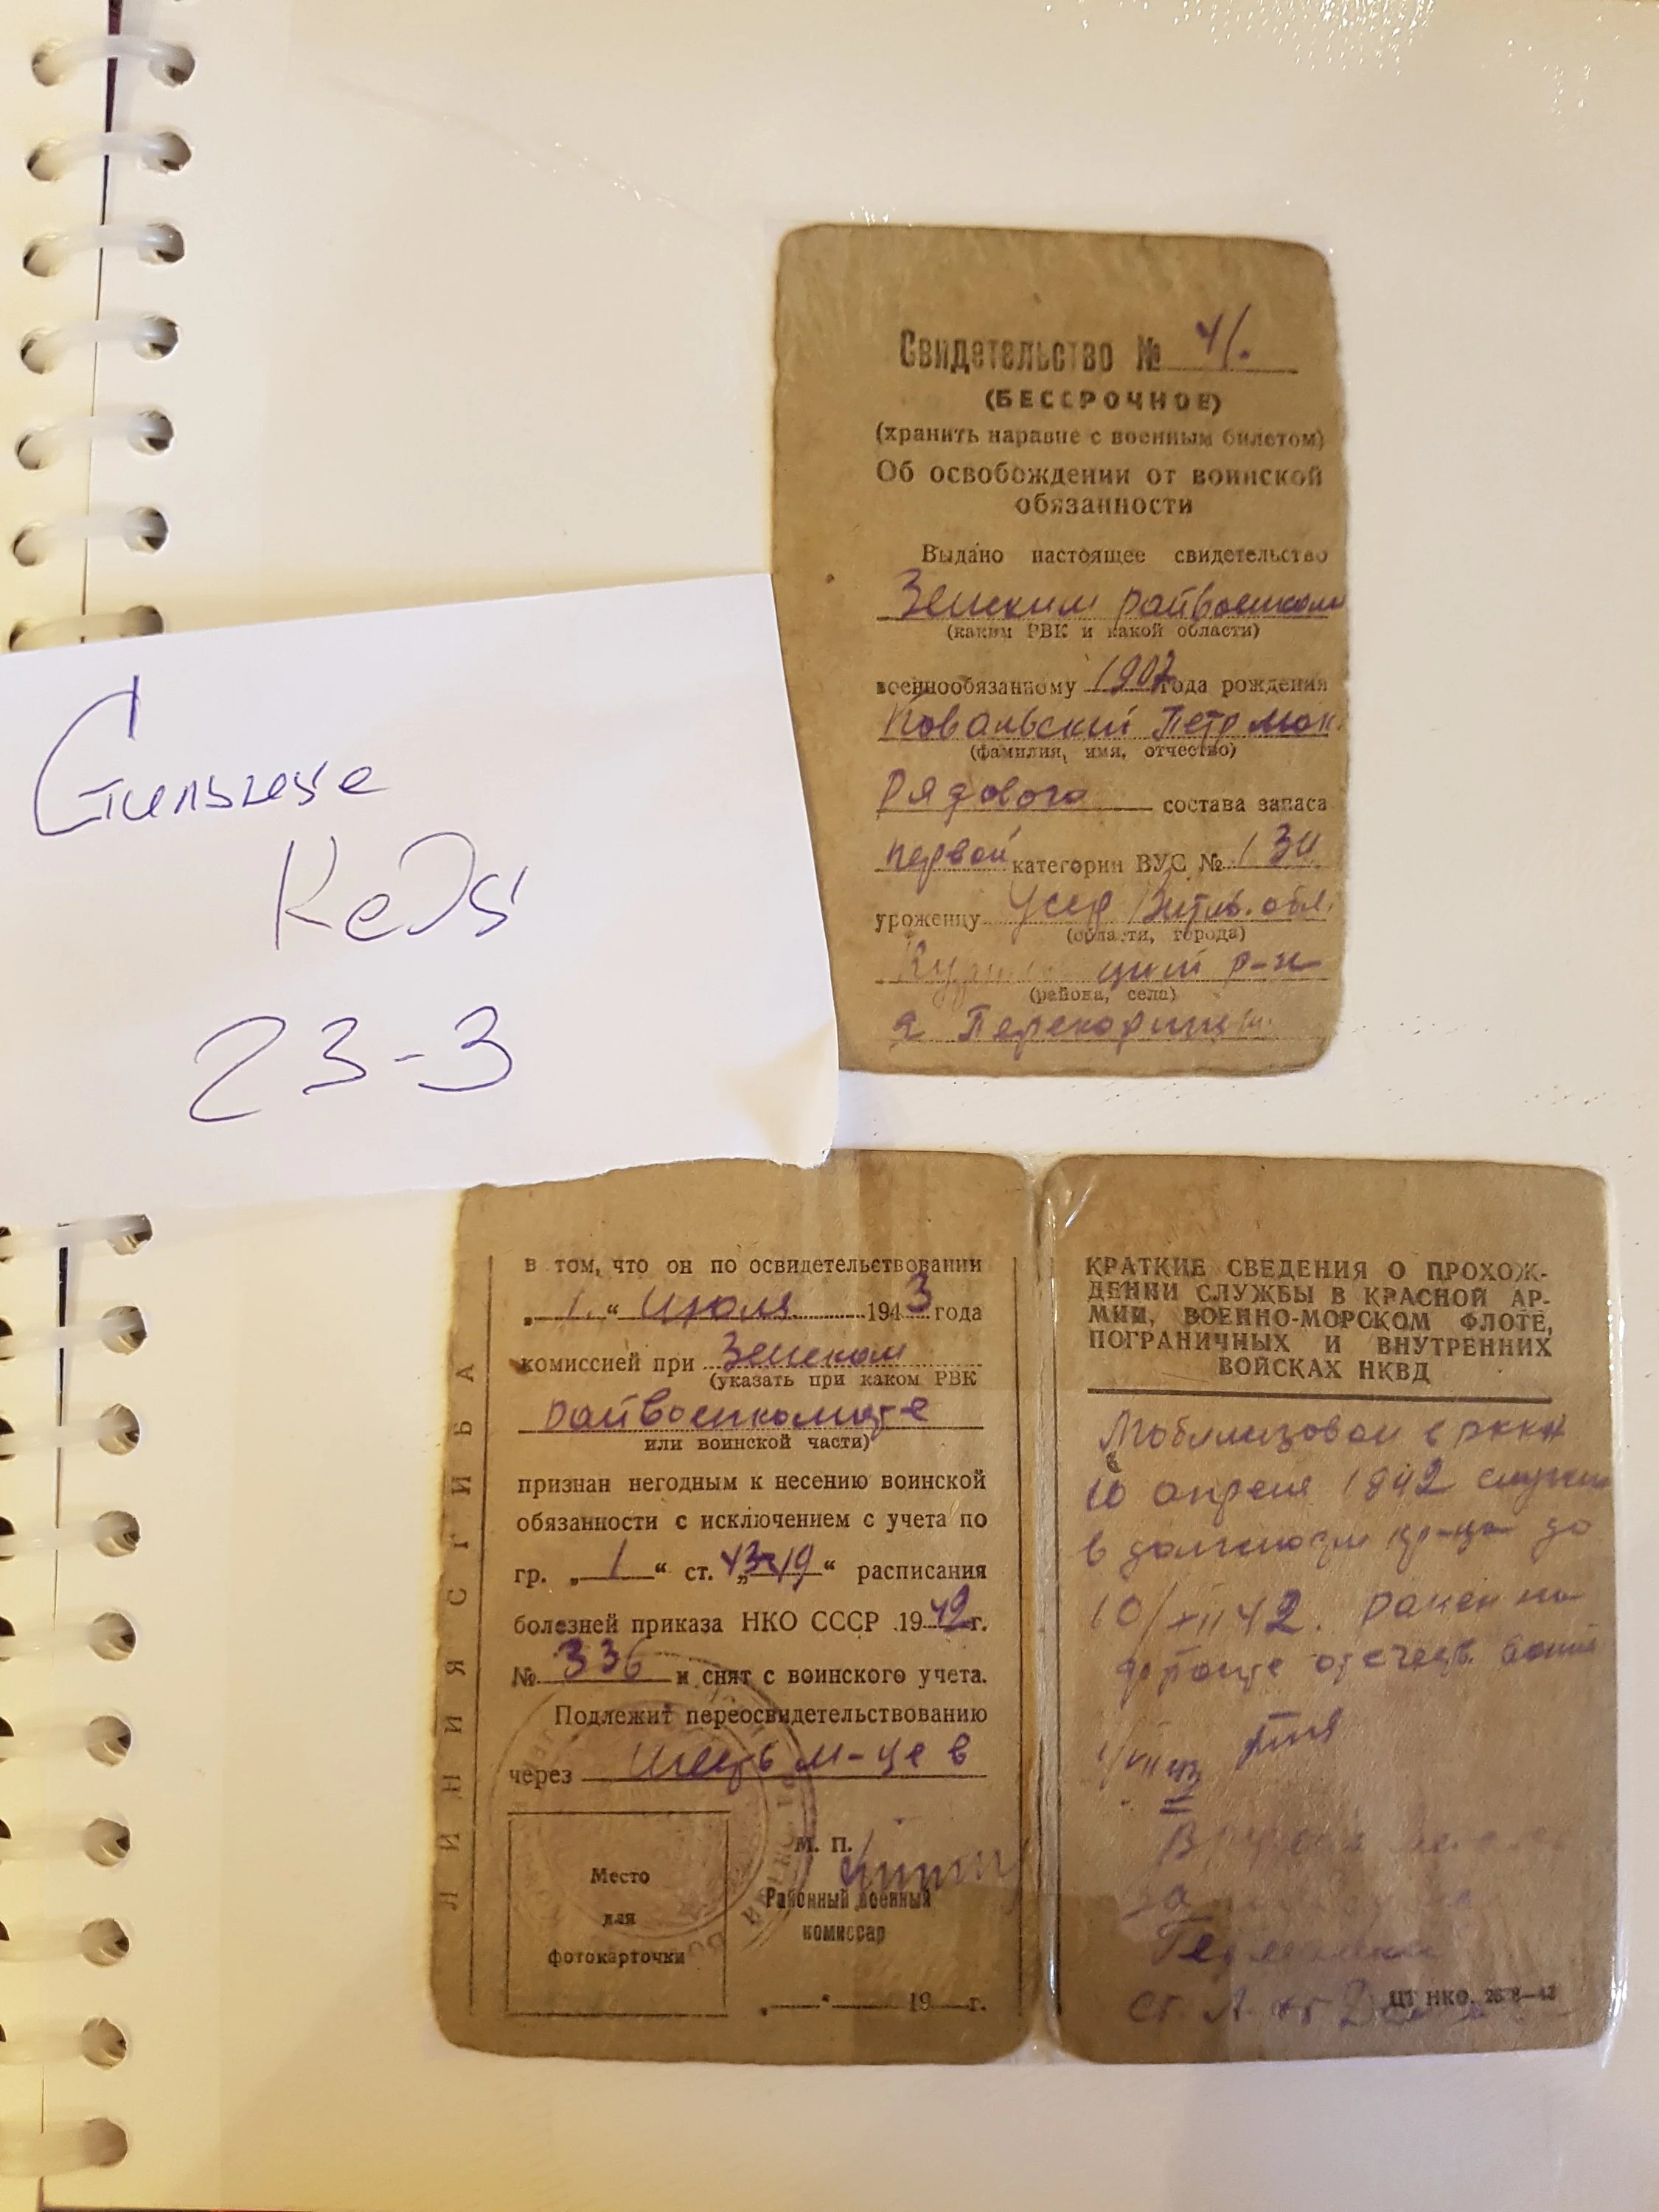 Свидетельство № 41.
(БЕССРОЧНОЕ)
(хранить наравне с военным билетом)
Об освобождении от воинской
обязанности
Выдано настоящее свидетельство
Зейским райвоенком
(каким РВК и какой области)
военнообязанному 1907 года рождения
Ковальский Петр
(фамилия, имя, отчество)
Рядового состава запаса
первой категории ВУС № 134
уроженцу обл.
(области, города)
р-н
(района, села)
Стильные
Кеды
23-3
в том, что он по освидетельствовании
„1.“ Июля 1943 года
комиссией при Зейском
(указать при каком РВК
райвоенкомате
или воинской части)
признан негодным к несению воинской
обязанности с исключением с учета по
гр. „1“ ст. „43-19“ расписания
болезней приказа НКО СССР 1942 г.
№ 336 и снят с воинского учета.
Подлежит переосвидетельствованию
через шесть м-цев
М. П.
Районный военный
комиссар
Место
для
фотокарточки
„ “ 19 г.
ЛИНИЯ СГИБА
КРАТКИЕ СВЕДЕНИЯ О ПРОХОЖ-
ДЕНИИ СЛУЖБЫ В КРАСНОЙ АР-
МИИ, ВОЕННО-МОРСКОМ ФЛОТЕ,
ПОГРАНИЧНЫХ И ВНУТРЕННИХ
ВОЙСКАХ НКВД
Мобилизован в РККА
10 апреля 1942 служил
в должности до
10/XII 42. ранен на
фронте отечеств. войны
ЦТ НКО.